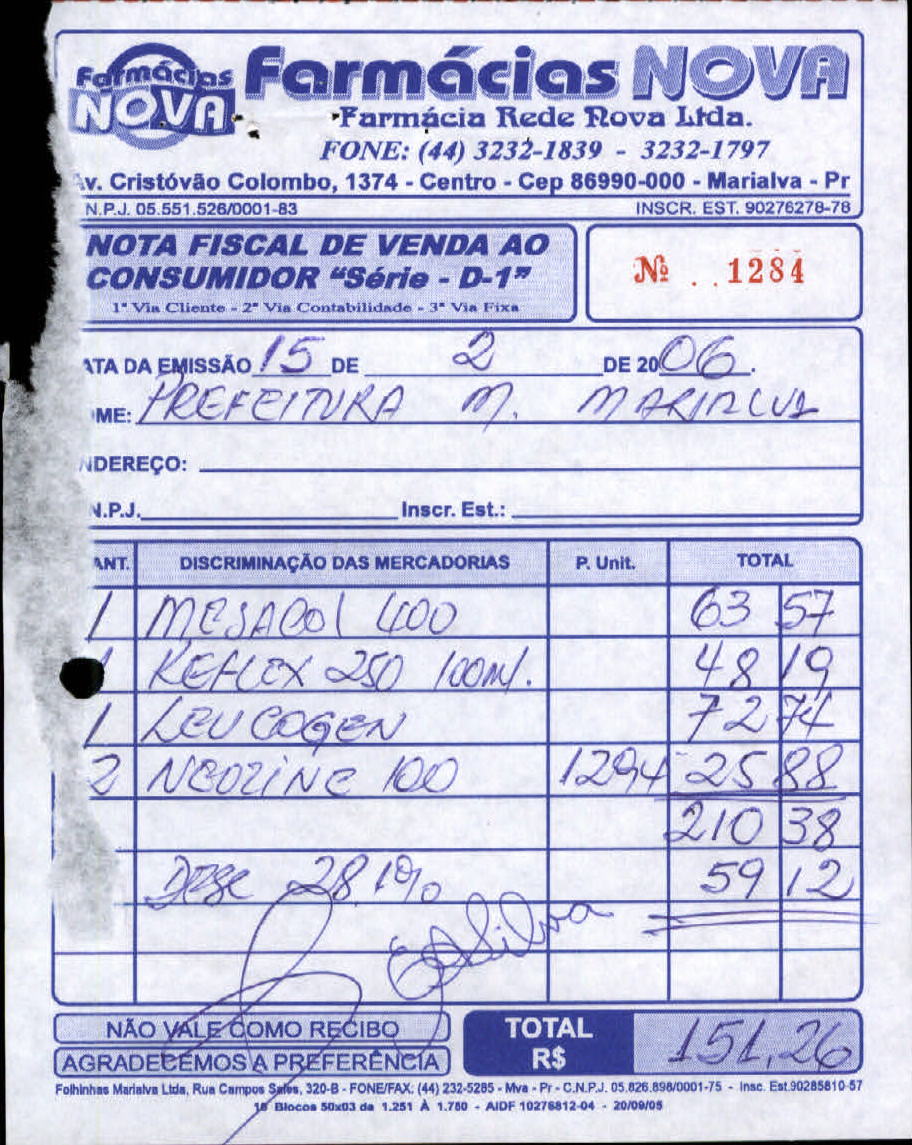 Farmácias NOVA
Farmácias NOVA
Farmácia Rede Nova Ltda.
FONE: (44) 3232-1839 - 3232-1797
v. Cristóvão Colombo, 1374 - Centro - Cep 86990-000 - Marialva - Pr
N.P.J. 05.551.526/0001-83 INSCR. EST. 90276278-78
NOTA FISCAL DE VENDA AO
CONSUMIDOR "Série - D-1"
1ª Via Cliente - 2ª Via Contabilidade - 3ª Via Fixa
Nº 1284
ATA DA EMISSÃO 15 DE 2 DE 2006.
OME: PREFEITURA M. MARIALVA
NDEREÇO:
N.P.J. Inscr. Est.:
ANT. DISCRIMINAÇÃO DAS MERCADORIAS P. Unit. TOTAL
1 MESACOL 400 63 57
1 KEFLEX 250 100ml. 48 19
1 LEUCOGEN 72 74
2 NEOZINE 100 1294 25 88
210 38
Desc 28.1% 59 12
Silva
NÃO VALE COMO RECIBO
AGRADECEMOS A PREFERÊNCIA
TOTAL R$ 151,26
Folhinhas Marialva Ltda, Rua Campos Sales, 320-B - FONE/FAX. (44) 232-5285 - Mva - Pr - C.N.P.J. 05.826.898/0001-75 - Insc. Est.90285810-57
Blocos 50x03 de 1.251 À 1.750 - AIDF 10276812-04 - 20/09/05